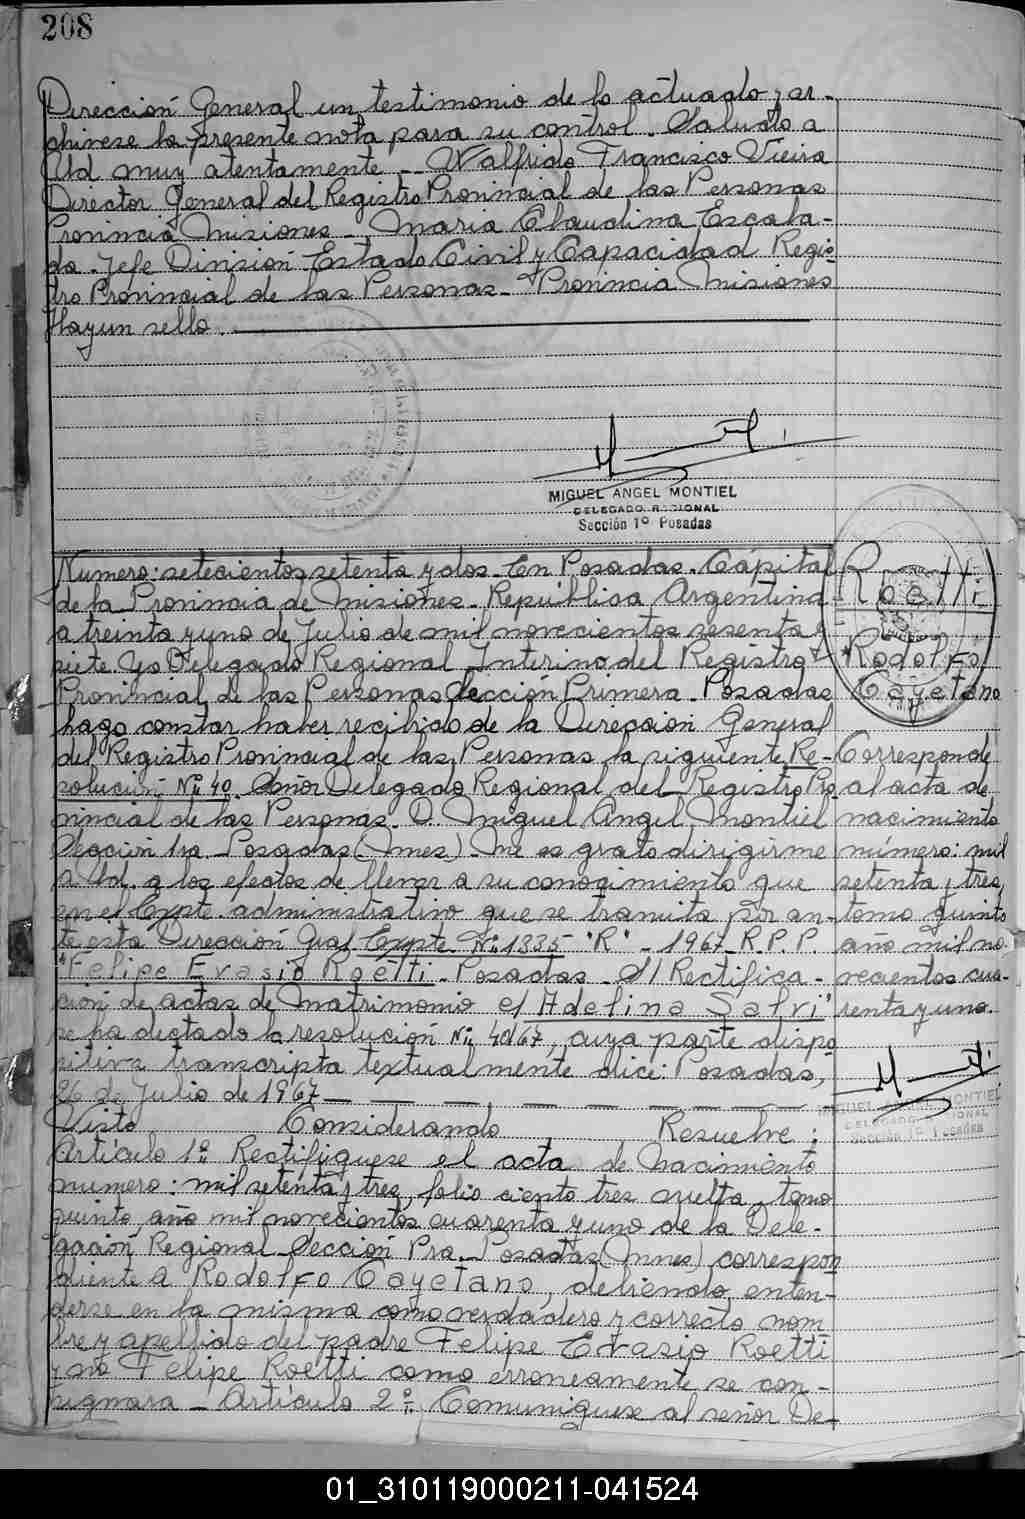 208
Dirección General un testimonio de lo actuado y ar-
chivese la presente nota para su control. Saludo a
Ud muy atentamente -- Walfrido Francisco Vieira
Director General del Registro Provincial de las Personas
Provincia Misiones - Maria Claudina Escala-
da - Jefe División Estado Civil y Capacidad Regis-
tro Provincial de las Personas - Provincia Misiones
Hay un sello.
MIGUEL ANGEL MONTIEL
DELEGADO REGIONAL
Sección 1º Posadas
Numero: setecientos setenta y dos - En Posadas - Cápital
de la Provincia de Misiones - Republica Argentina
a treinta y uno de Julio de mil novecientos sesenta y
siete. Yo Delegado Regional Interino del Registro
Provincial de las Personas Sección Primera Posadas
hago constar haber recibido de la Dirección General
del Registro Provincial de las Personas la siguiente Re-
solución Nº 40. Señor Delegado Regional del Registro Pro
vincial de las Personas D. Miguel Angel Montiel
Sección 1ra Posadas (Mnes) - Me es grato dirigirme
a Ud. a los efectos de llevar a su conocimiento que
en el Expte. administrativo que se tramita por an-
te esta Dirección Gral Expte Nº 1335 "R" - 1967 R.P.P.
"Felipe Evasio Roetti - Posadas - S/ Rectifica-
ción de actas de Matrimonio c/ Adelina Salvi"
se ha dictado la resolución Nº 40/67, cuya parte dispo
sitiva transcripta textualmente dice: Posadas,
26 de Julio de 1967 -- -- --
Visto Considerando Resuelve:
Artículo 1º Rectifíquese el acta de Nacimiento
numero: mil setenta y tres, folio ciento tres vuelta, tomo
quinto, año mil novecientos cuarenta y uno de la Dele-
gación Regional Sección Pra. Posadas (Mnes) correspon
diente a Rodolfo Cayetano, debiendo enten-
derse en la misma como verdadero y correcto nom
bre y apellido del padre Felipe Evasio Roetti
y no Felipe Roetti como erroneamente se con-
signara - Artículo 2º. Comuniquese al señor De-
Roetti
Rodolfo
Cayetano
Corresponde
al acta de
nacimiento
número: mil
setenta y tres,
tomo quinto
año mil no-
vecientos cua-
renta y uno.
MIGUEL ANGEL MONTIEL
DELEGADO REGIONAL
Sección 1º Posadas
01_310119000211-041524